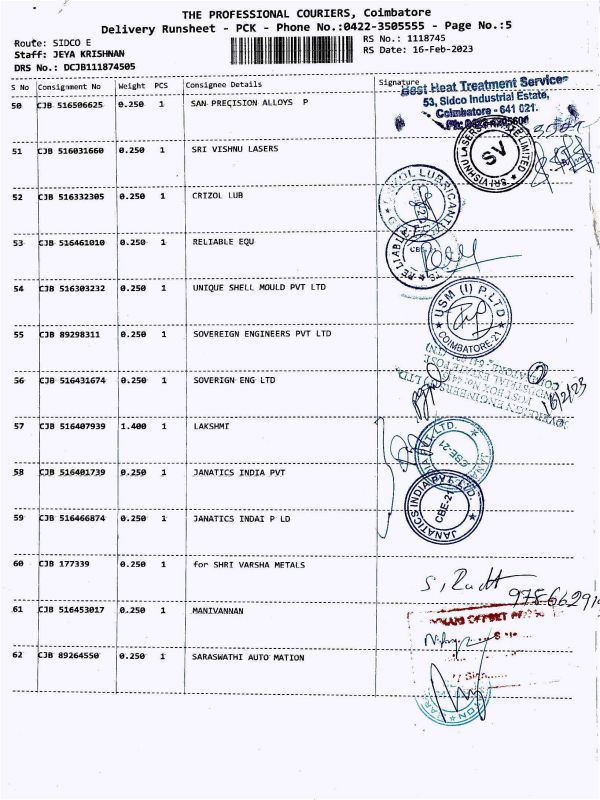 THE PROFESSIONAL COURIERS, Coimbatore
Delivery Runsheet - PCK - Phone No.:0422-3505555 - Page No.:5
Route: SIDCO E
RS No.: 1118745
Staff: JEYA KRISHNAN
RS Date: 16-Feb-2023
DRS No.: DCJB111874505
S No Consignment No Weight PCS Consignee Details Signature
50 CJB 516506625 0.250 1 SAN PRECISION ALLOYS P
Best Heat Treatment Services
53, Sidco Industrial Estate,
Coimbatore - 641 021.
51 CJB 516031660 0.250 1 SRI VISHNU LASERS
SRI VISHNU LASERS PRIVATE LIMITED
SV
52 CJB 516332305 0.250 1 CRIZOL LUB
53 CJB 516461010 0.250 1 RELIABLE EQU
54 CJB 516303232 0.250 1 UNIQUE SHELL MOULD PVT LTD
USM (I) P.LTD
COIMBATORE-21
55 CJB 89298311 0.250 1 SOVEREIGN ENGINEERS PVT LTD
56 CJB 516431674 0.250 1 SOVERIGN ENG LTD
16/2/23
57 CJB 516407939 1.400 1 LAKSHMI
PVT.LTD.
CBE-21
58 CJB 516401739 0.250 1 JANATICS INDIA PVT
JANATICS INDIA PVT LTD.
CBE-21
59 CJB 516466874 0.250 1 JANATICS INDAI P LD
60 CJB 177339 0.250 1 for SHRI VARSHA METALS
61 CJB 516453017 0.250 1 MANIVANNAN
62 CJB 89264550 0.250 1 SARASWATHI AUTO MATION